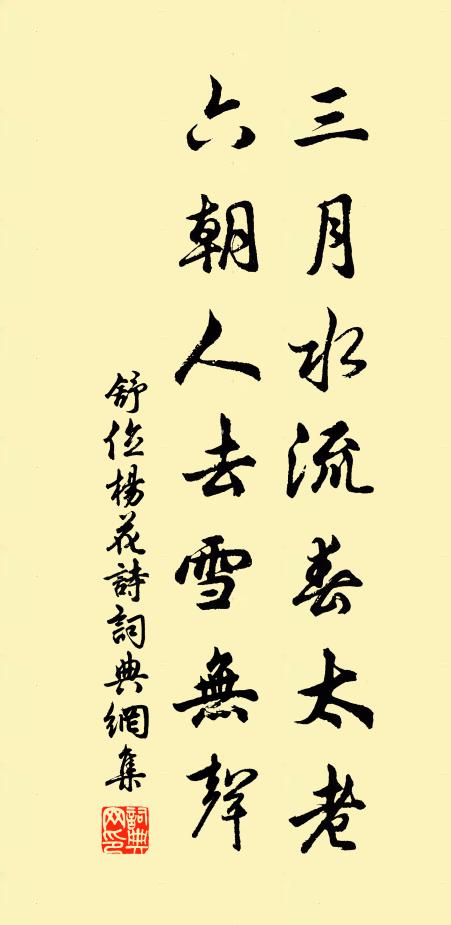 三月水流春太老
六朝人去雪無聲
舒位楊花詩詞典網集
詞典網印